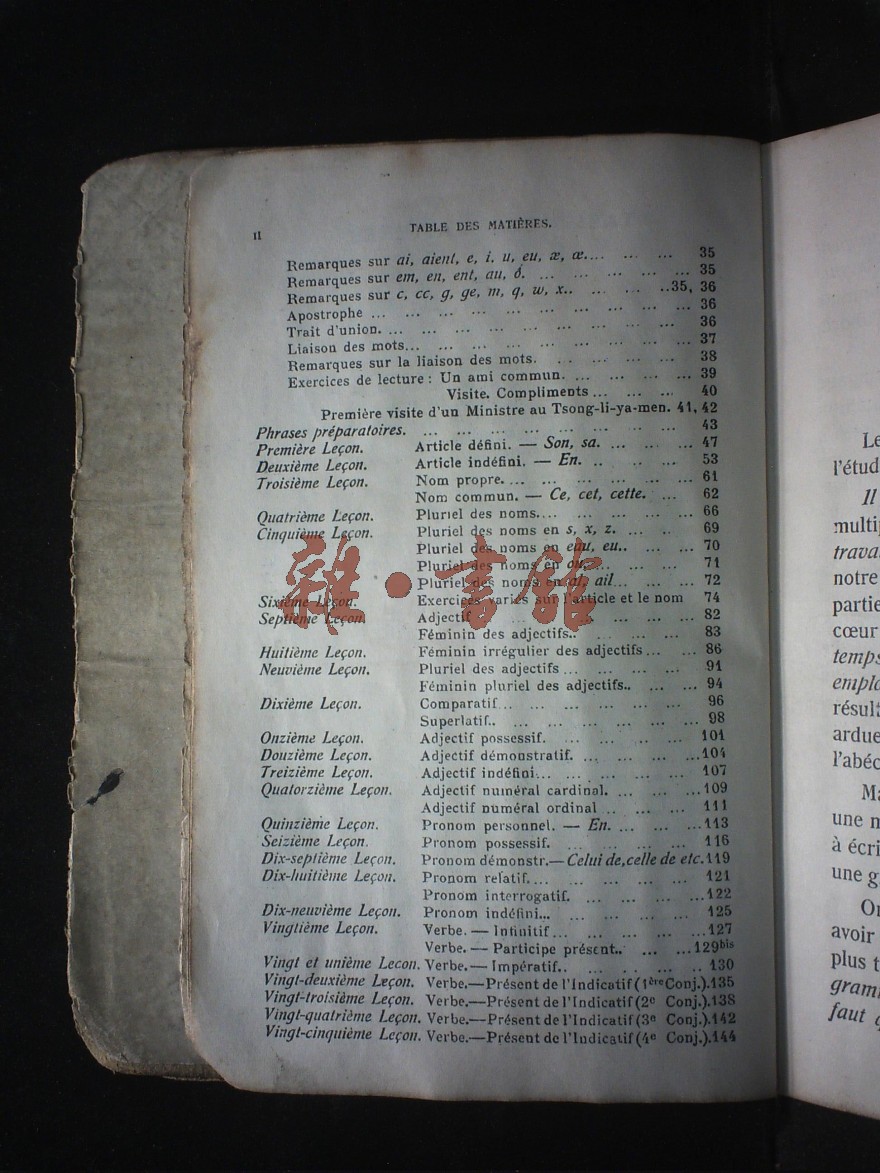 II
TABLE DES MATIÈRES.
Remarques sur ai, aient, e, i. u, eu, æ, œ.... ... ... ... 35
Remarques sur em, en, ent, au, ô. ... ... ... ... ... ... 35
Remarques sur c, cc, g, ge, m, q, w, x.. ... ... .. ..35, 36
Apostrophe ... ... ... ... ... ... ... ... ... ... 36
Trait d'union. ... ... ... ... ... ... ... ... ... 36
Liaison des mots... ... ... ... ... ... ... ... ... 37
Remarques sur la liaison des mots. . .. ... ... ... 38
Exercices de lecture : Un ami commun. ... ... ... ... 39
Visite. Compliments ... ... ... 40
Première visite d'un Ministre au Tsong-li-ya-men. 41, 42
Phrases préparatoires. ... ... ... ... ... ... ... ... 43
Première Leçon. Article défini. — Son, sa. ... ... ... 47
Deuxième Leçon. Article indéfini. — En. .. .. ... ... 53
Troisième Leçon. Nom propre. ... ... ... ... ... ... ... 61
Nom commun. — Ce, cet, cette. ... ... 62
Quatrième Leçon. Pluriel des noms.... ... ... ... ... ... 66
Cinquième Leçon. Pluriel des noms en s, x, z. ... ... .. 69
Pluriel des noms en eau, eu.. ... ... ... 70
Pluriel des noms en ou, ... ... ... ... 71
Pluriel des noms en al, ail... ... ... ... 72
Sixième Leçon. Exercices variés sur l'article et le nom 74
Septième Leçon. Adjectif ... ... ... ... ... ... 82
Féminin des adjectifs.. ... ... ... ... 83
Huitième Leçon. Féminin irrégulier des adjectifs ... ... 86
Neuvième Leçon. Pluriel des adjectifs ... ... ... ... ... 91
Féminin pluriel des adjectifs.. ... ... ... 94
Dixième Leçon. Comparatif... ... ... ... ... ... ... 96
Superlatif.. ... ... ... ... ... ... ... 98
Onzième Leçon. Adjectif possessif. ... ... .. ... ...101
Douzième Leçon. Adjectif démonstratif. ... ... ... ...104
Treizième Leçon. Adjectif indéfini... ... ... ... ... ... 107
Quatorzième Leçon. Adjectif numéral cardinal. ... ... ... ...109
Adjectif numéral ordinal .. ... ... ... 111
Quinzième Leçon. Pronom personnel. — En. ... ... ... ...113
Seizième Leçon. Pronom possessif. ... ... ... ... ... 116
Dix-septième Leçon. Pronom démonstr.— Celui de, celle de etc.119
Dix-huitième Leçon. Pronom relatif.... ... ... ... ... ... 121
Pronom interrogatif. ... ... ... ... ...122
Dix-neuvième Leçon. Pronom indéfini... ... ... ... ... 125
Vingtième Leçon. Verbe. — Infinitif ... ... ... ... ...127
Verbe. — Participe présent.. ... ...129bis
Vingt et unième Lecon. Verbe.— Impératif.. ... .. . ... .. 130
Vingt-deuxième Leçon. Verbe.—Présent de l'Indicatif (1ère Conj.).135
Vingt-troisième Leçon. Verbe.—Présent de l'Indicatif (2e Conj.).138
Vingt-quatrième Leçon. Verbe.—Présent de l'Indicatif (3e Conj.).142
Vingt-cinquième Leçon. Verbe.—Présent de l'Indicatif (4e Conj.).144
雜·書館
Le
l'étud
Il
multi
trava
notre
partie
cœur
temps
emplo
résult
ardue
l'abéc
Ma
une m
à écri
une g
On
avoir
plus t
gram
faut